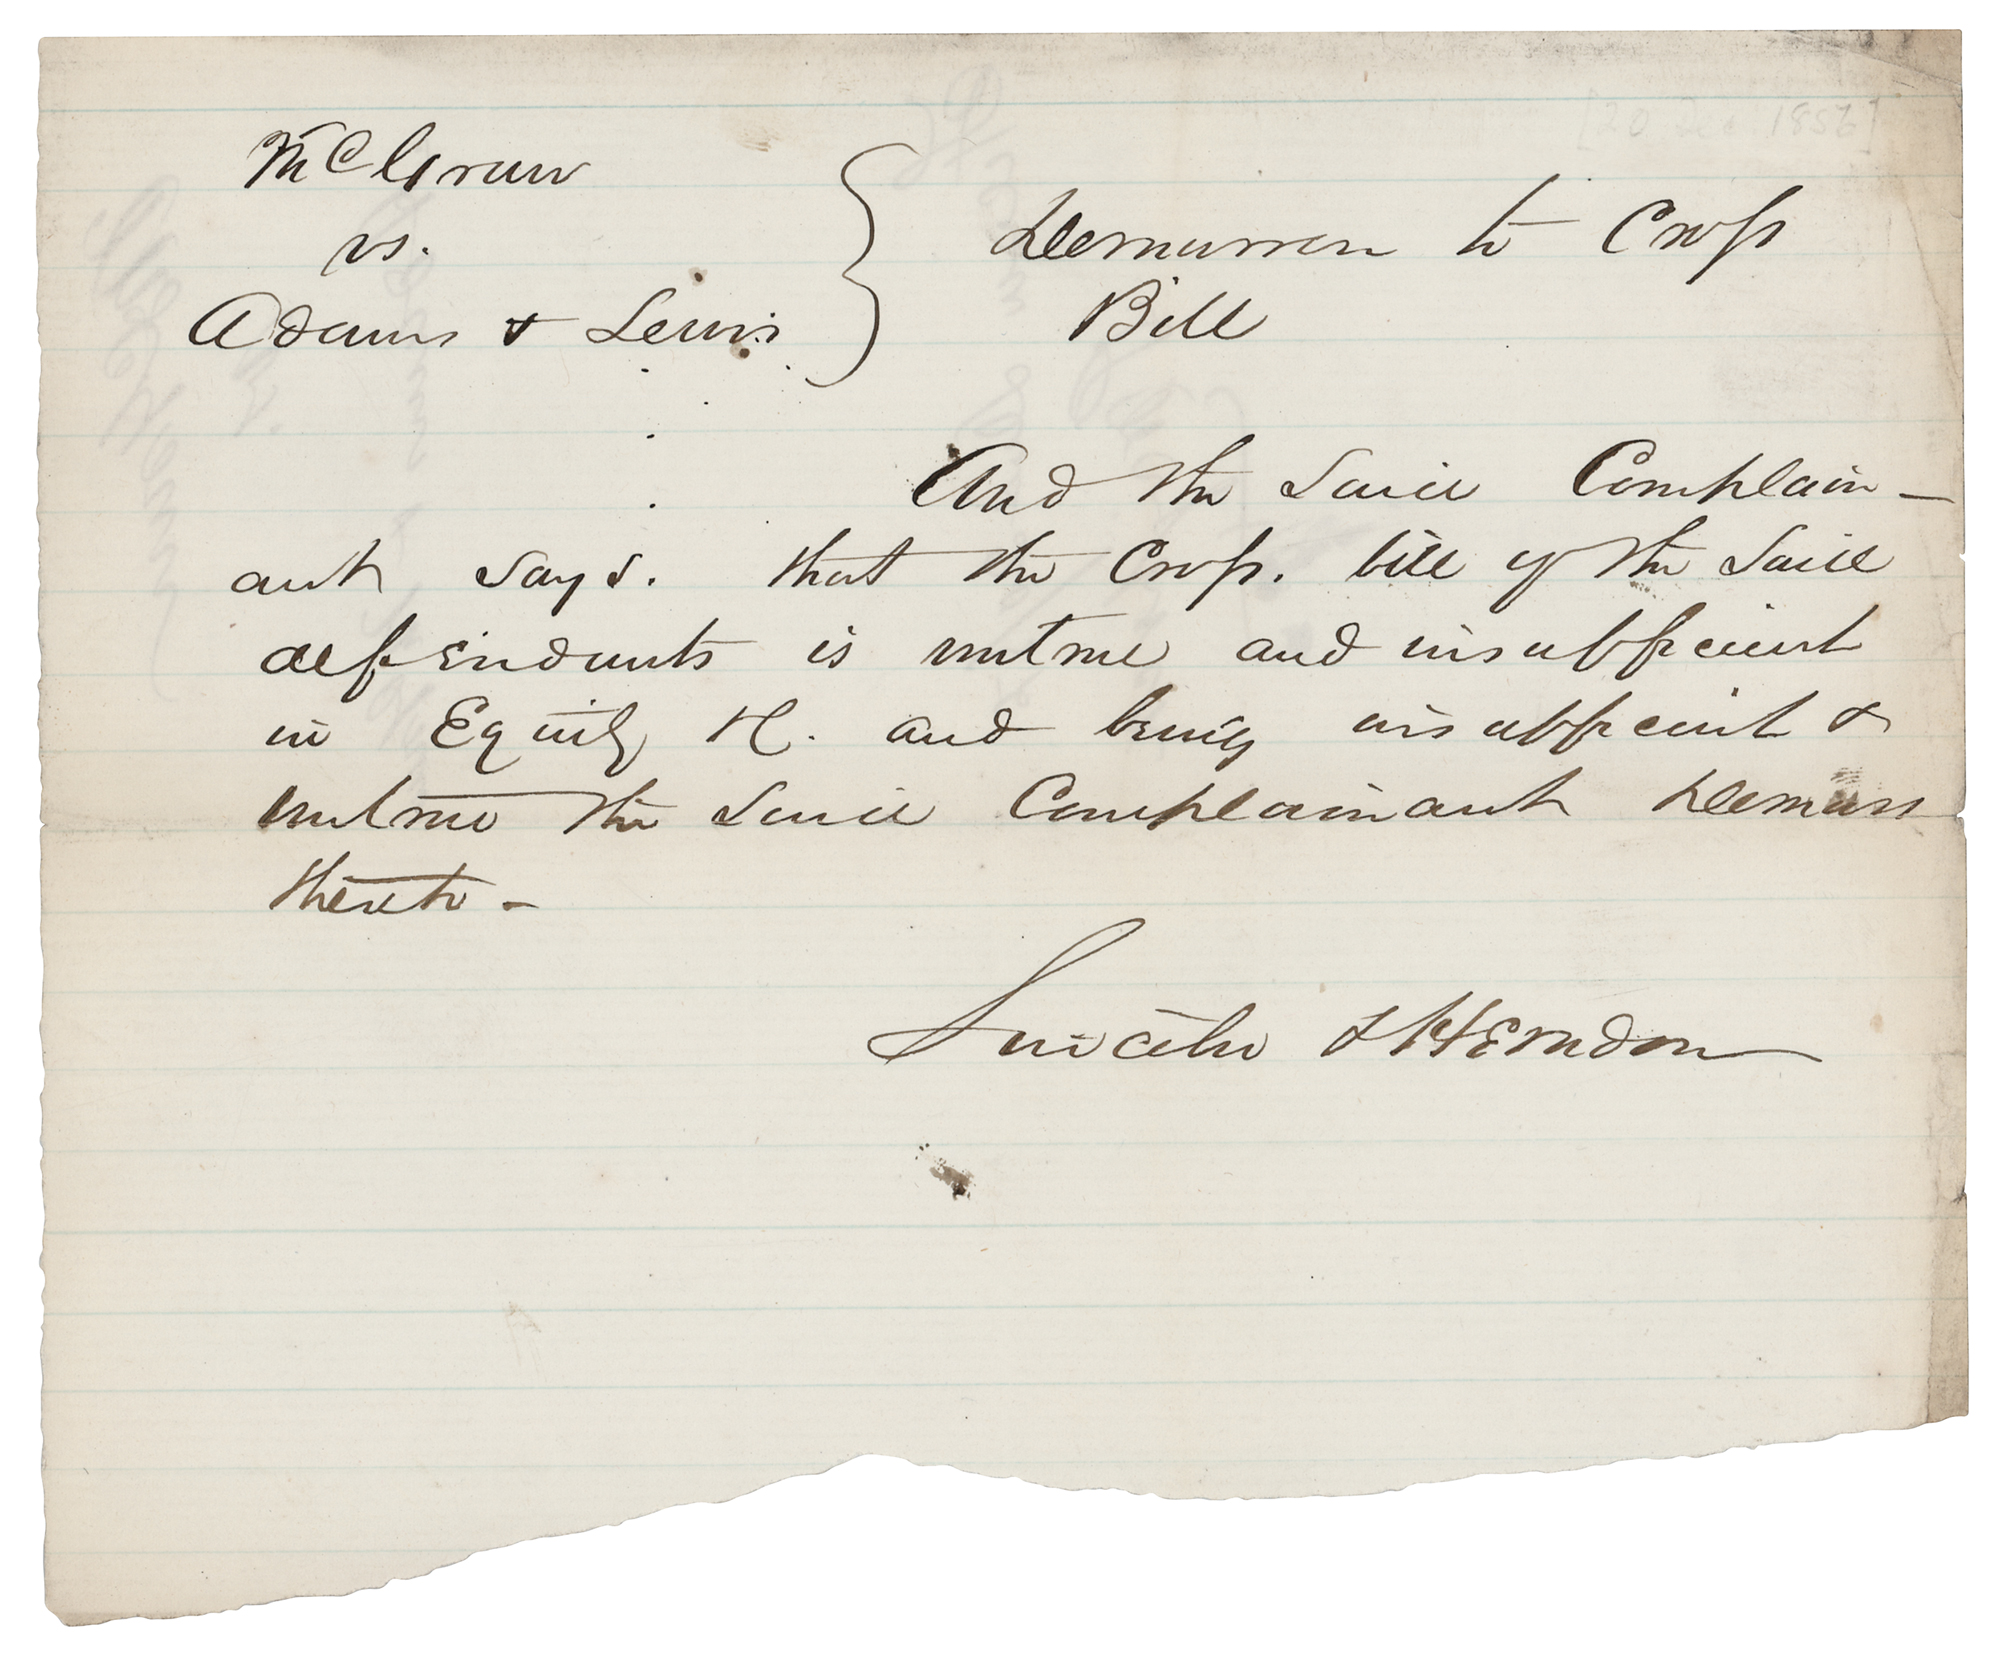 [20 Dec. 1856]
McGraw
vs.
Adams & Lewis
Demurrer to Cross
Bill
And the said Complain-
ant says. that the Cross. bill of the said
defendants is untrue and insufficient
in Equity &c. and being insufficient &
untrue the said Complainant demurs
thereto -
Lincoln & Herndon